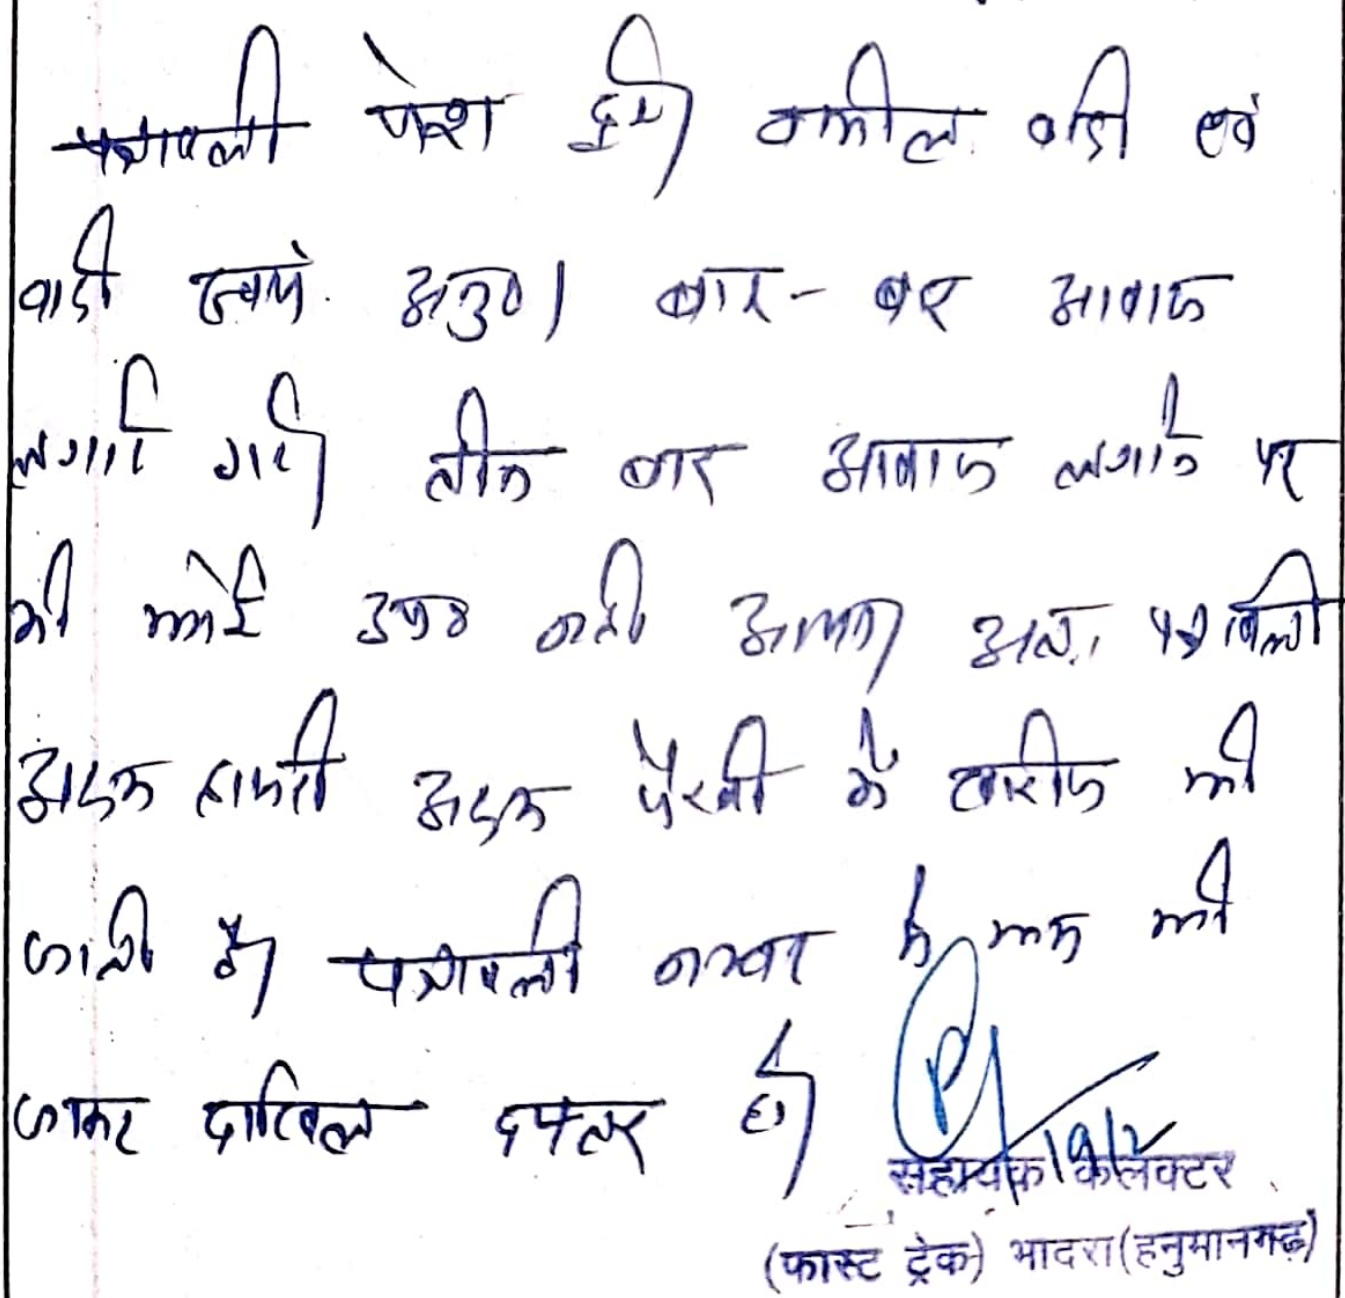 पत्रावली पेश हुई। वकील वादी एवं
वादी स्वयं अनु०। बार-बार आवाज
लगाई गई। तीन बार आवाज लगाने पर
भी कोई उप० नही आया। अतः पत्रावली
अदम हाजरी अदम पैरवी में खारीज की
जाती है। पत्रावली नम्बर से कम की
जाकर दाखिल दफ्तर हो।
19/2
सहायक कलेक्टर
(फास्ट ट्रेक) भादरा (हनुमानगढ़)